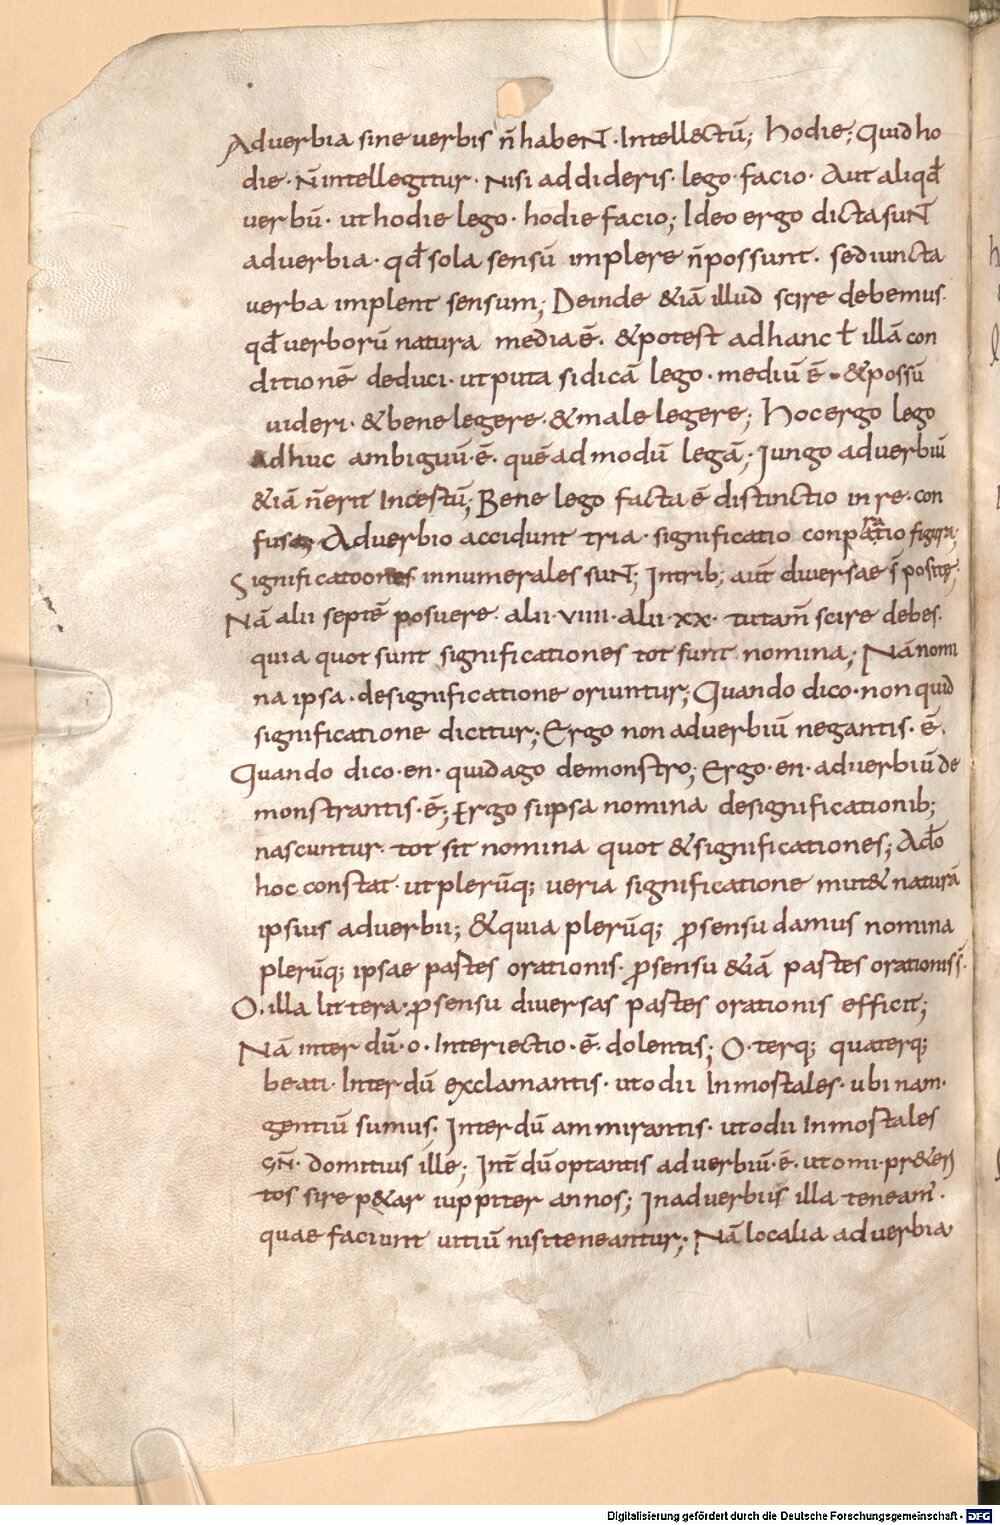 Aduerbia sine uerbis n̄ habent · Intellectū; hodie; Quid ho
die · N̄ intellegitur · Nisi addideris · lego · facio · Aut aliqđ
uerbū · ut hodie lego · hodie facio; Ideo ergo dicta sunt
aduerbia · qđ sola sensū implere n̄ possunt · sed iuncta
uerba implent sensum; Deinde &iā illud scire debemus
qđ uerborū natura media ē · & potest ad hanc ł illā con
ditionē deduci · ut puta si dicā lego · mediū ē · & possū
uideri · & bene legere · & male legere; Hoc ergo lego
adhuc ambiguū · ē · quē ad modū legā; Iungo aduerbiū
&iā n̄ erit Incestū; Bene lego facta ē distinctio in re · con
fusa Aduerbio accidunt tria · significatio conparatio figura;
Significatoones innumerales sunt; In trib; aut̄ diuersae s̄ positę;
Nā alii septē posuere · alii · VIIII · alii · XX · tu tam̄ scire debes ·
quia quot sunt significationes tot sunt nomina; Nā nomi
na ipsa · designificatione oriuntur; Quando dico · non quid
significatione dicitur; Ergo non aduerbiū negantis · ē ·
Quando dico · en · quid ago demonstro; Ergo · en · aduerbiū de
monstrantis · ē; Ergo si ipsa nomina designificationib;
nascuntur · tot sit nomina quot & significationes; Adō
hoc constat · ut plerūq; ueria significatione mut& naturā
ipsius aduerbii; & quia plerūq; p̱ sensu damus nomina
plerūq; ipsae partes orationis · p̱ sensu &iā partes orationis s̄ ·
O · illa littera · p̱ sensu diuersas partes orationis efficit;
Nā inter dū · o · Interiectio · ē · dolentis; O · terq; quaterq;
beati · Inter dū exclamantis · ut o dii Inmortales · ubi nam ·
gentiū sumus · Inter dū ammirantis · ut o dii Inmortales
sn̄ · domitius ille; Int̄ dū optantis aduerbiū · ē · ut o mi · pr&eri
tos si re p&at iuppiter annos; In aduerbiis illa teneam̄ ·
quae faciunt uitiū nisi teneantur; Nā localia aduerbia
Digitalisierung gefördert durch die Deutsche Forschungsgemeinschaft - DFG